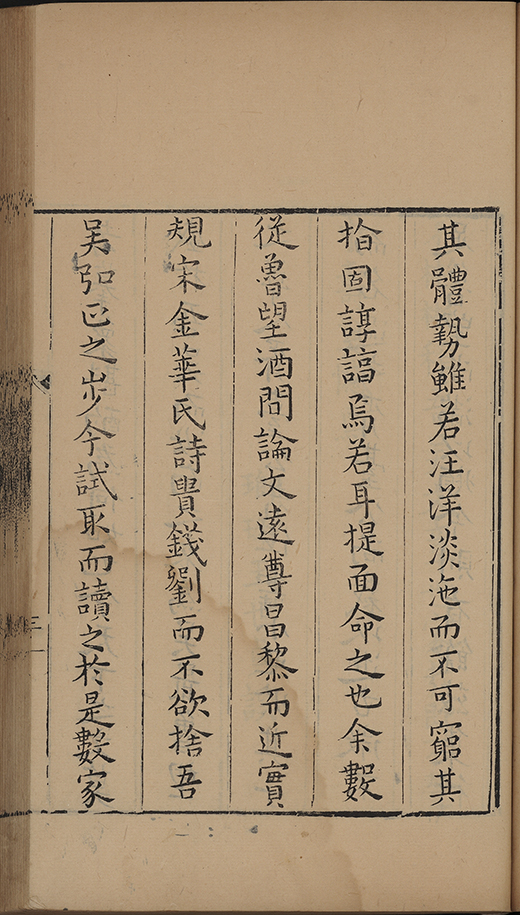 其體勢雖若汪洋淡沲而不可窮其
指固諄諄焉若耳提面命之也余數
從魯望酒間論文遠尊昌黎而近實
規宋金華氏詩貴錢劉而不欲捨吾
吳弘正之步今試取而讀之於是數家
三